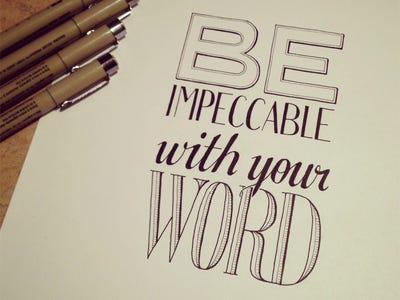 BE
IMPECCABLE
with your
WORD